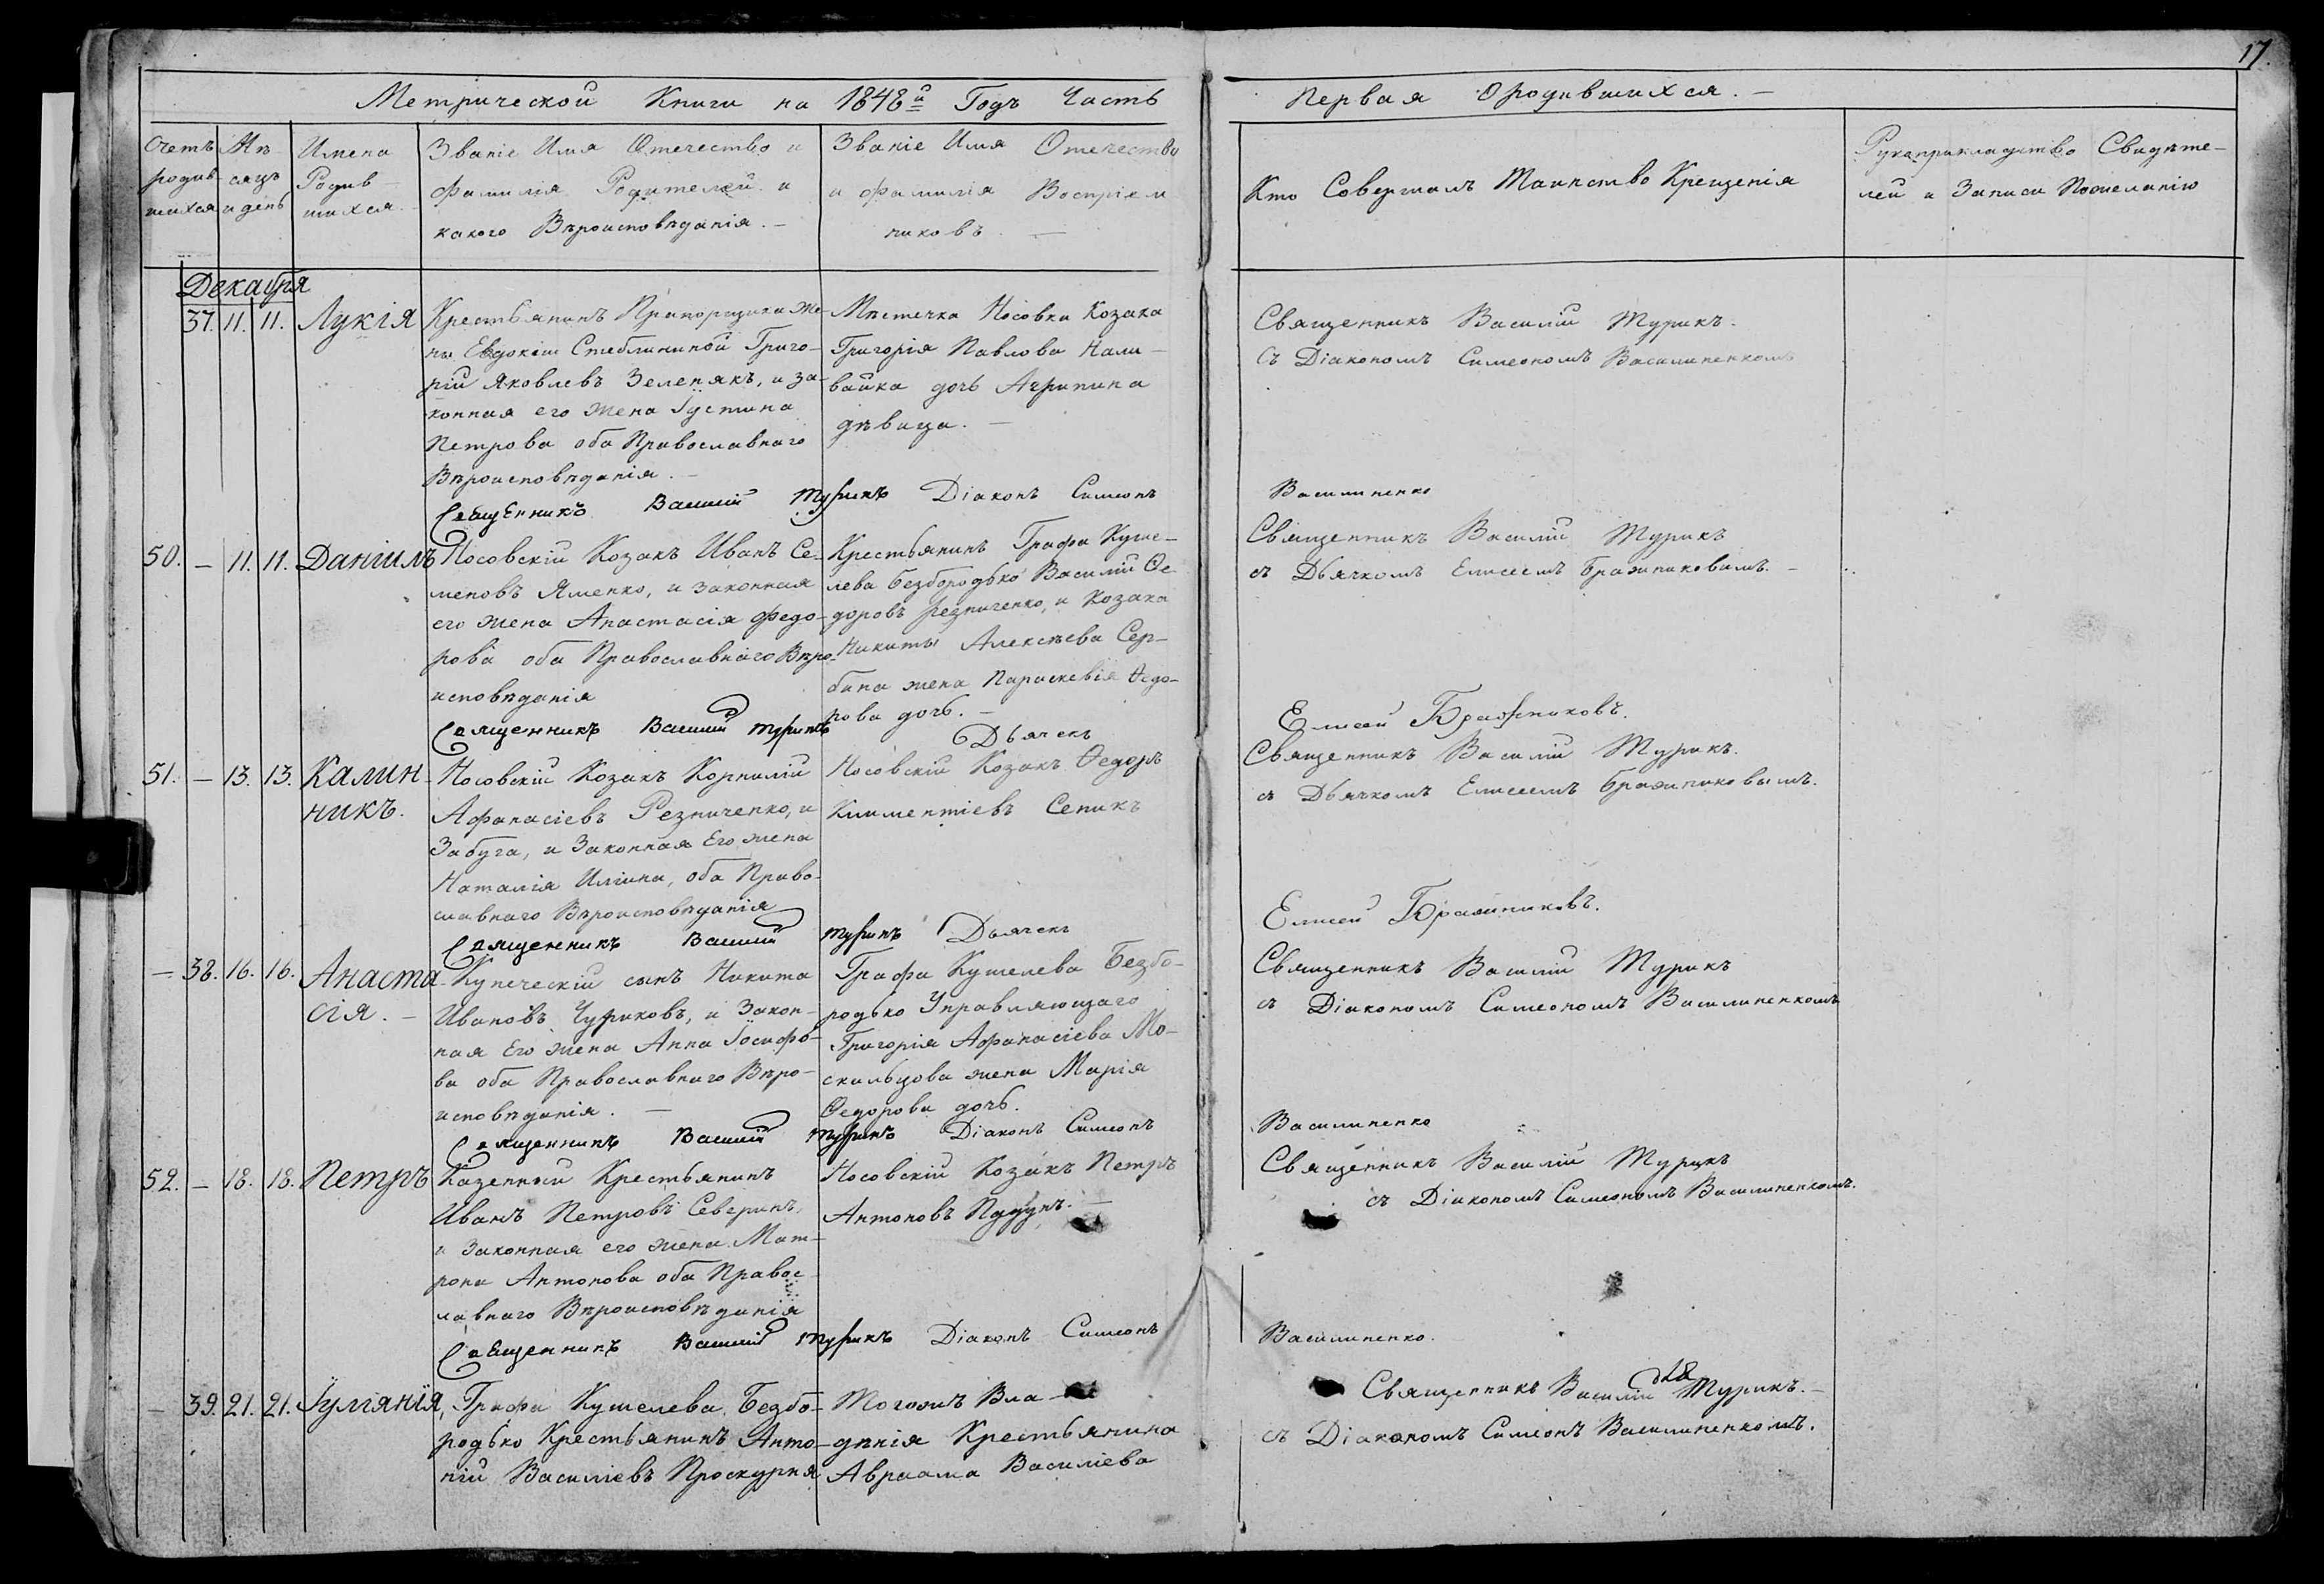 17.
Метрической Книги на 1848й Годъ Часть
Первая о родившихся. —
Счетъ родив- шихся
Мѣ- сяцъ и день
Имена Родив- шихся.
Званіе Имя Отечество и
Фамилія Родителей и
какого Вѣроисповѣданія. —
Званіе Имя Отечество
и Фамилія Воспріем
никовъ. —
Кто Совершалъ Таинство Крещенія
Рукоприкладство Свидѣте-
лей и Записи Пожеланію
Декабря
37. 11. 11. Лукія
Крестьянинъ Прапорщика Же-
ны Евдокіи Стеблининой Григо-
рій Яковлевъ Зеленякъ, и за-
конная его жена Іустина
Петрова оба Православнаго
Вѣроисповѣданія. —
Мѣстечка Носовки Козака
Григорія Павлова Нали-
вайка дочь Агрипина
дѣвица. —
Священникъ Василій Турикъ.
съ Діакономъ Симеономъ Василиненкомъ
Священникъ Василій Турикъ Діаконъ Симеонъ
Василиненко
50. — 11. 11. Даніилъ
Носовскій Козакъ Иванъ Се-
меновъ Яменко, и законная
его жена Анастасія Федо-
рова оба Православнаго Вѣро-
исповѣданія
Крестьянинъ Графа Куше-
лева Безбородько Василій Ѳе
доровъ Резниченко, и Козака
Никиты Алексѣева Сер-
бина жена Параскевія Ѳедо-
рова дочь. —
Священникъ Василій Турикъ
съ Дьячкомъ Елисеемъ Бражниковымъ. —
Священникъ Василій Турикъ Дьячекъ
Елисей Бражниковъ.
51. — 13. 13. Калин-
никъ.
Носовскій Козакъ Корнилій
Афанасіевъ Резниченко, и
Забуга, и Законная Его жена
Наталія Иліина, оба Право-
славнаго Вѣроисповѣданія
Носовскій Козакъ Ѳедоръ
Климентіевъ Сеникъ
Священникъ Василій Турикъ.
съ Дьячкомъ Елисеемъ Бражниковымъ.
Священникъ Василій Турикъ Дьячекъ
Елисей Бражниковъ.
— 38. 16. 16. Анаста
сія. —
Купеческій сынъ Никита
Ивановъ Чуриковъ, и Закон-
ная Его жена Анна Іосифо-
ва оба Православнаго Вѣро-
исповѣданія. —
Графа Кушелева Безбо-
родько Управляющаго
Григорія Афанасіева Мо-
скальцова жена Марія
Ѳедорова дочь.
Священникъ Василій Турикъ
съ Діакономъ Симеономъ Василиненкомъ
Священникъ Василій Турикъ Діаконъ Симеонъ
Василиненко
52. — 18. 18. Петръ
Казенный Крестьянинъ
Иванъ Петровъ Северинъ,
и Законная его жена Мат-
рона Антонова оба Правос-
лавнаго Вѣроисповѣданія
Носовскій Козакъ Петръ
Антоновъ
Священникъ Василій Турикъ
съ Діакономъ Симеономъ Василиненкомъ.
Священникъ Василій Турикъ Діаконъ Симеонъ
Василиненко.
— 39. 21. 21. Іуліанія,
Графа Кушелева Безбо-
родько Крестьянинъ Анто-
ній Василіевъ Проскурня
Тогожъ Вла-
дѣнія Крестьянина
Авраама Василіева
Священникъ Василій Турикъ. —
съ Діакономъ Симеонъ Василиненкомъ.